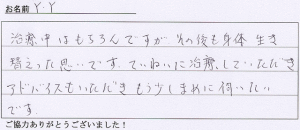 お名前 Y.Y
治療中はもちろんですが その後も身体 生き
替えった思いです。ていねいに治療していただき
アドバイスもいただき もう少しまめに伺いたい
です。
ご協力ありがとうございました！